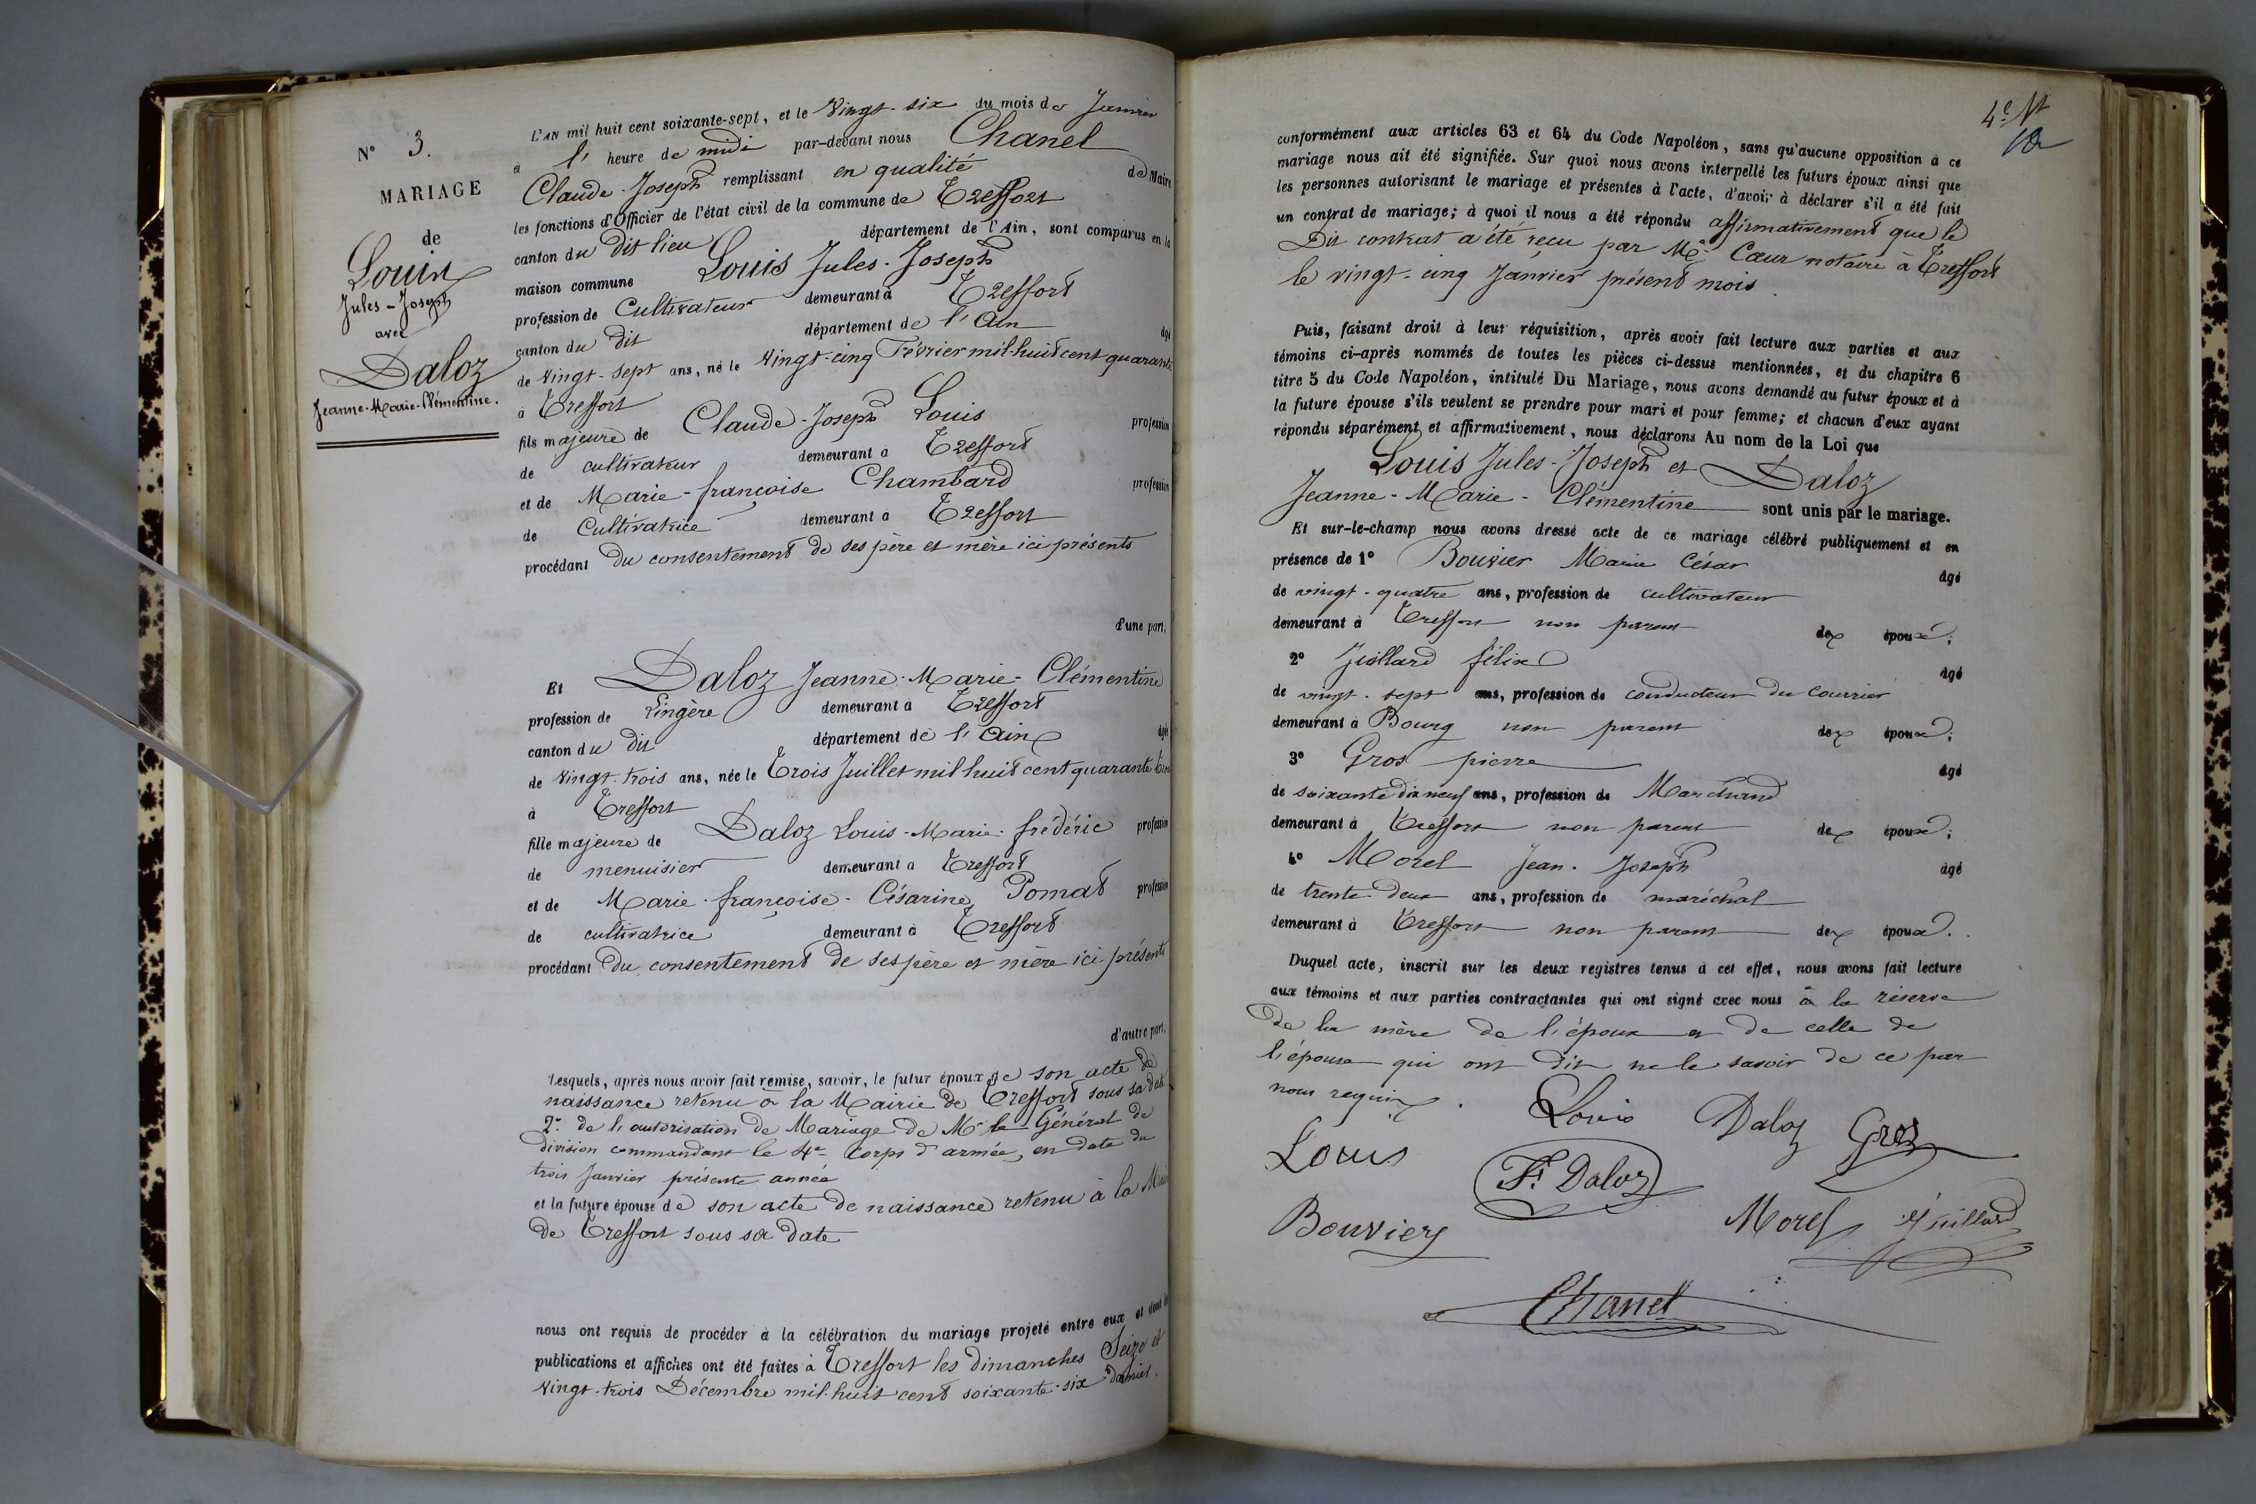 N° 3.
MARIAGE
de
Louis
Jules-Joseph
avec
Daloz
Jeanne-Marie-Clémentine.
L'AN mil huit cent soixante-sept, et le Vingt-six du mois de Janvier
à l' heure de midi par-devant nous Chanel
Claude-Joseph remplissant en qualité de Maire
les fonctions d'Officier de l'état civil de la commune de Treffort
canton du dit lieu département de l'Ain, sont comparus en la
maison commune Louis Jules-Joseph
profession de Cultivateur demeurant à Treffort
canton du dit département de l'Ain âgé
de vingt-sept ans, né le vingt-cinq Février mil-huit cent quarante
à Treffort
fils majeure de Claude-Joseph Louis profession
de cultivateur demeurant à Treffort
et de Marie-françoise Chambard profession
de Cultivatrice demeurant à Treffort
procédant du consentement de ses père et mère ici présents
d'une part,
Et Daloz Jeanne-Marie-Clémentine
profession de Lingère demeurant à Treffort
canton du dit département de l'Ain âgée
de vingt-trois ans, née le Trois Juillet mil huit cent quarante trois
à Treffort
fille majeure de Daloz Louis-Marie-frédéric profession
de menuisier demeurant à Treffort
et de Marie-françoise-Césarine Pomat profession
de cultivatrice demeurant à Treffort
procédant du consentement de ses père et mère ici présents
d'autre part,
Lesquels, après nous avoir fait remise, savoir, le futur époux de son acte de
naissance retenu à la Mairie de Treffort sous sa date
2° de l'autorisation de Mariage de Mr le Général de
division commandant le 4e corps d'armée, en date du
trois Janvier présente année
et la future épouse de son acte de naissance retenu à la Mairie
de Treffort sous sa date
nous ont requis de procéder à la célébration du mariage projeté entre eux et dont les
publications et affiches ont été faites à Treffort les dimanches Seize et
vingt-trois Décembre mil-huit cent soixante-six dernier.
4e Vt
conformément aux articles 63 et 64 du Code Napoléon, sans qu'aucune opposition à ce
mariage nous ait été signifiée. Sur quoi nous avons interpellé les futurs époux ainsi que
les personnes autorisant le mariage et présentes à l'acte, d'avoir à déclarer s'il a été fait
un contrat de mariage; à quoi il nous a été répondu affirmativement que le
Dit contrat a été reçu par Me Cœur notaire à Treffort
le vingt-cinq Janvier présent mois
Puis, faisant droit à leur réquisition, après avoir fait lecture aux parties et aux
témoins ci-après nommés de toutes les pièces ci-dessus mentionnées, et du chapitre 6
titre 5 du Code Napoléon, intitulé Du Mariage, nous avons demandé au futur époux et à
la future épouse s'ils veulent se prendre pour mari et pour femme; et chacun d'eux ayant
répondu séparément et affirmativement, nous déclarons Au nom de la Loi que
Louis Jules-Joseph et Daloz
Jeanne-Marie-Clémentine sont unis par le mariage.
Et sur-le-champ nous avons dressé acte de ce mariage célébré publiquement et en
présence de 1° Bouvier Marie César âgé
de vingt-quatre ans, profession de cultivateur
demeurant à Treffort non parent des époux;
2° Juillard félix âgé
de vingt-sept ans, profession de conducteur du courrier
demeurant à Bourg non parent des époux;
3° Gros pierre âgé
de soixante dix neuf ans, profession de Marchand
demeurant à Treffort non parent des époux;
4° Morel Jean-Joseph âgé
de trente deux ans, profession de maréchal
demeurant à Treffort non parent des époux.
Duquel acte, inscrit sur les deux registres tenus à cet effet, nous avons fait lecture
aux témoins et aux parties contractantes qui ont signé avec nous à la réserve
de la mère de l'époux et de celle de
l'épouse qui ont dit ne le savoir de ce par
nous requis.
Louis Daloz Gros
Louis
F. Daloz
Bouvier Morel Juillard
Chanel